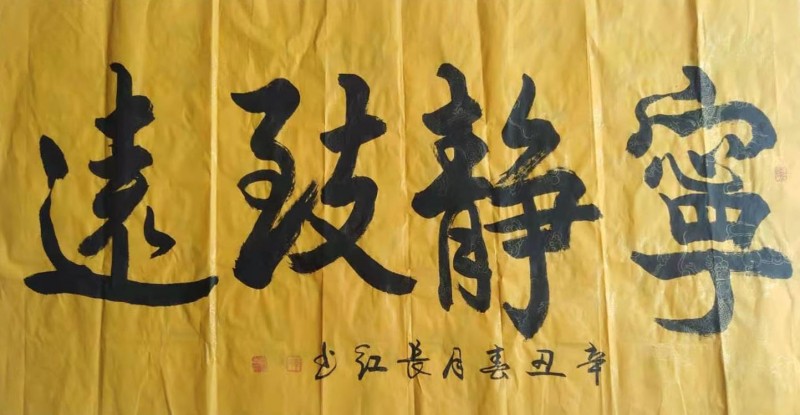 寧靜致遠
辛丑春月長紅书